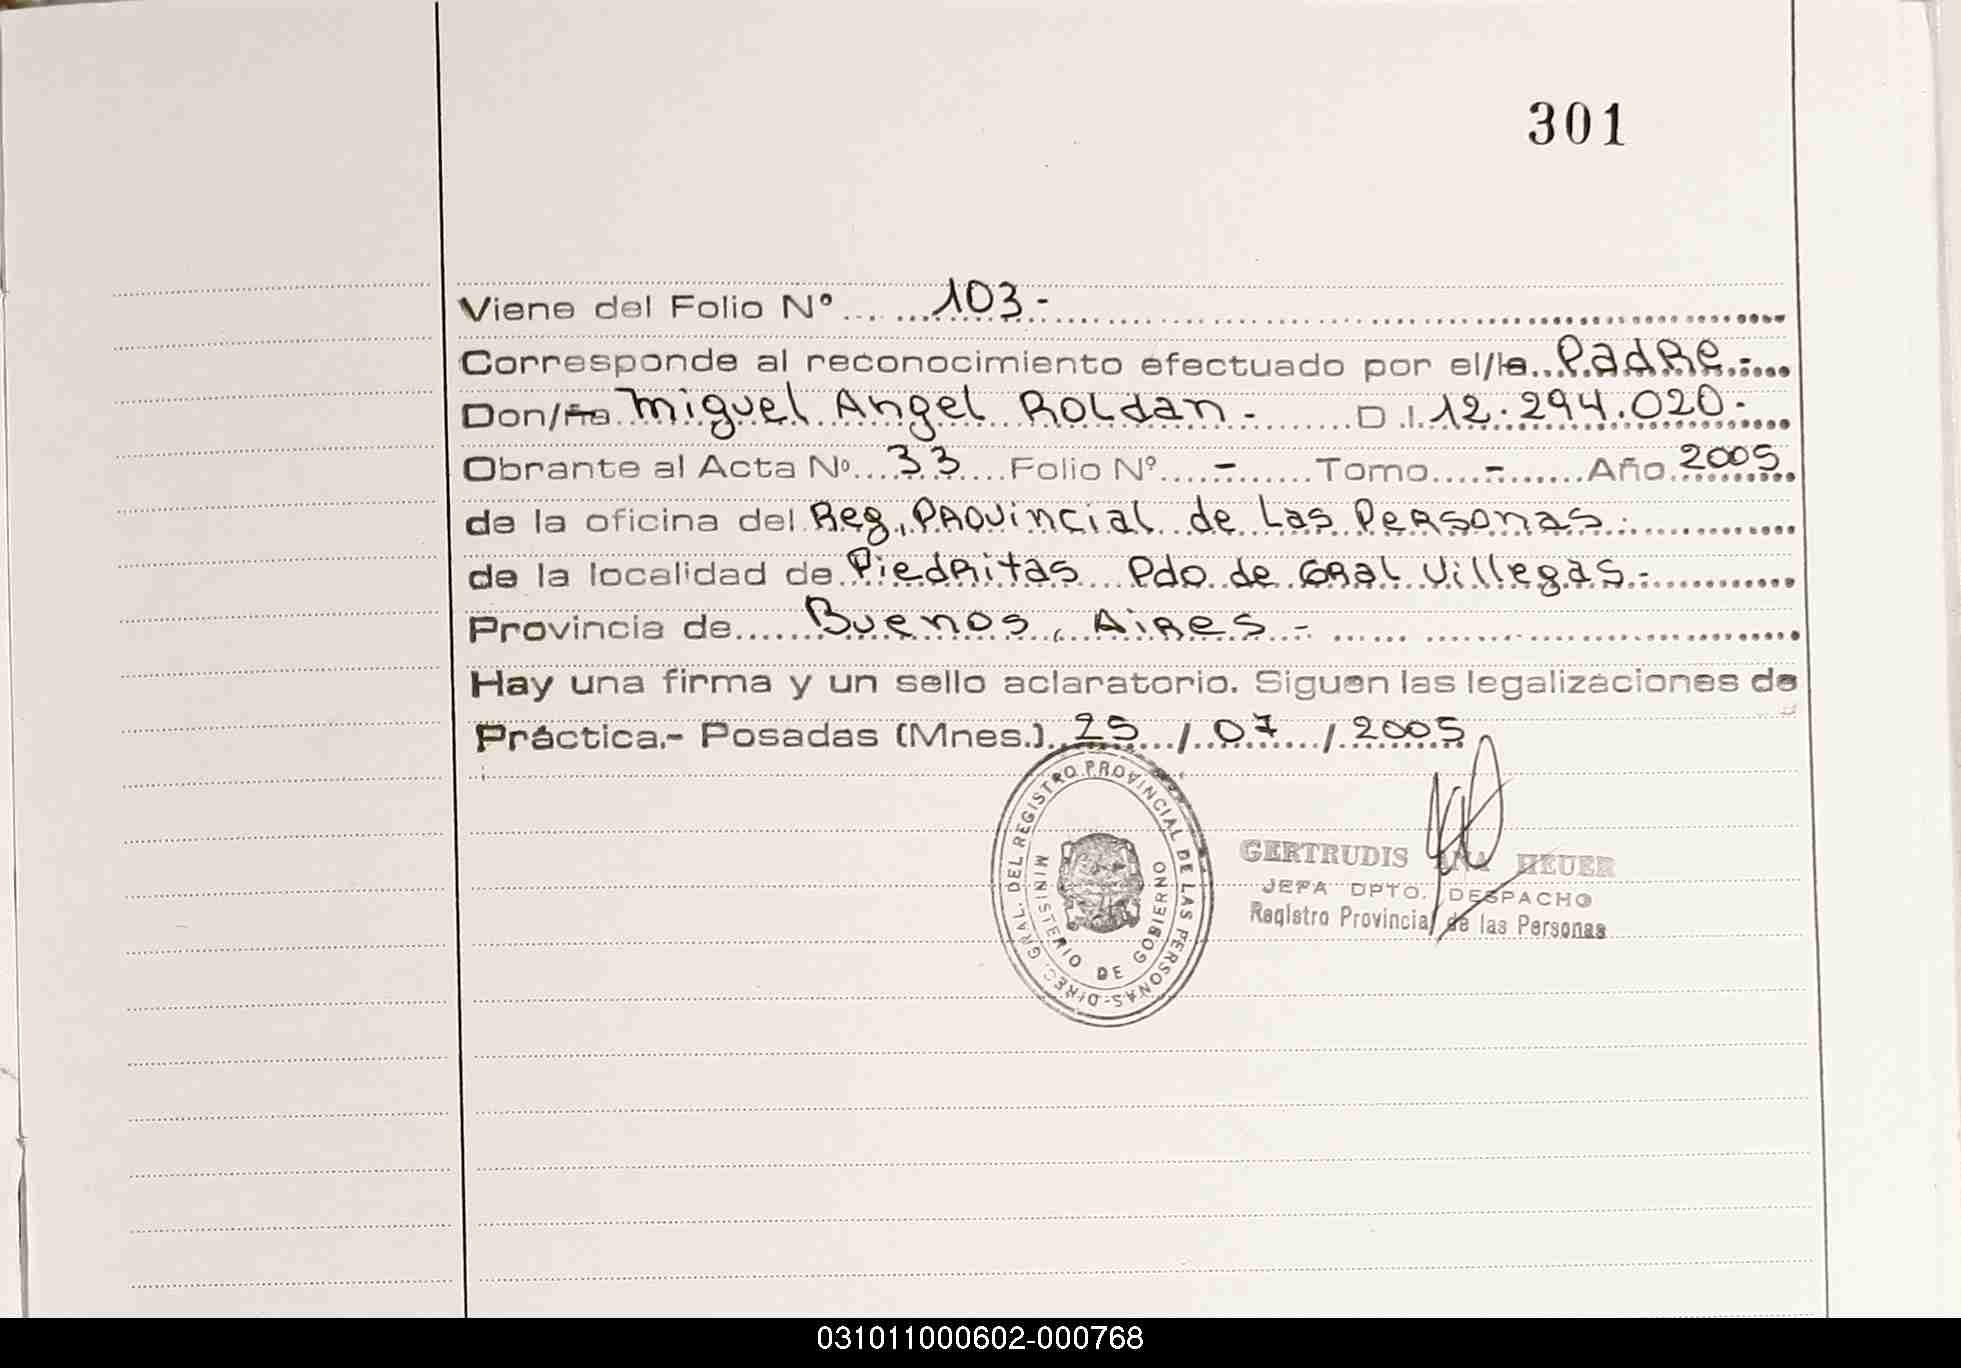 301
Viene del Folio Nº 103-
Corresponde al reconocimiento efectuado por el/la Padre-
Don/ña Miguel Angel Roldan- D.I. 12.294.020-
Obrante al Acta Nº 33 Folio Nº - Tomo - Año 2005
de la oficina del Reg. Provincial de Las Personas
de la localidad de Piedritas Pdo de Gral Villegas-
Provincia de Buenos Aires-
Hay una firma y un sello aclaratorio. Siguen las legalizaciones de
Práctica.- Posadas (Mnes.) 25 / 07 / 2005
DIREC. GRAL. DEL REGISTRO PROVINCIAL DE LAS PERSONAS-
MINISTERIO DE GOBIERNO
GERTRUDIS ANA HEUER
JEFA DPTO. DESPACHO
Registro Provincial de las Personas
031011000602-000768